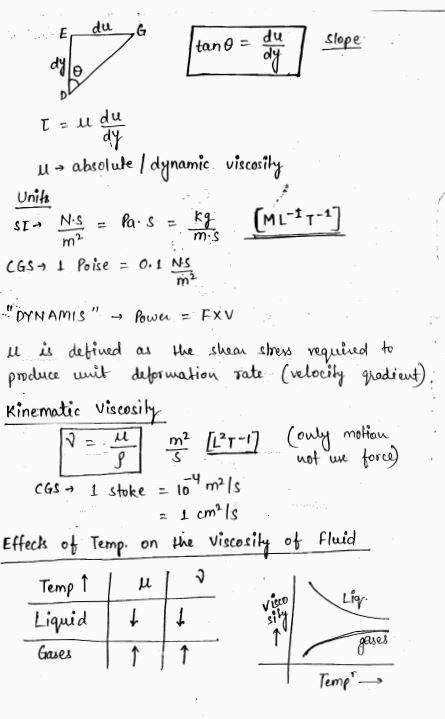 E du G
dy θ
D
tanθ = du/dy slope
τ = μ du/dy
μ → absolute / dynamic viscosity
Units
SI → N·s/m² = Pa·s = kg/m·s [ML⁻¹T⁻¹]
CGS → 1 Poise = 0.1 NS/m²
"DYNAMIS" → Power = F×V
μ is defined as the shear stress required to
produce unit deformation rate (velocity gradient).
Kinematic Viscosity
ν = μ/ρ m²/s [L²T⁻¹] (only motion
not use force)
CGS → 1 stoke = 10⁻⁴ m²/s
= 1 cm²/s
Effects of Temp. on the Viscosity of Fluid
Temp ↑ μ ν
Liquid ↓ ↓
Gases ↑ ↑
Visco
sity
↑
Liq.
gases
Tempʳ →